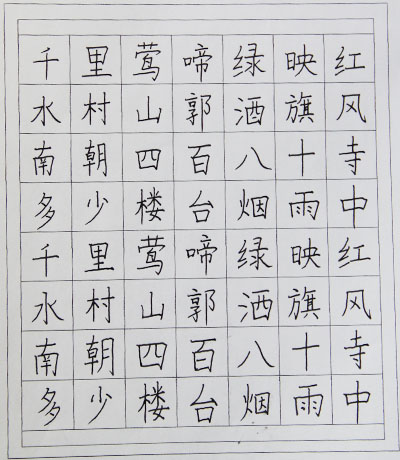 千里莺啼绿映红
水村山郭洒旗风
南朝四百八十寺
多少楼台烟雨中
千里莺啼绿映红
水村山郭洒旗风
南朝四百八十寺
多少楼台烟雨中